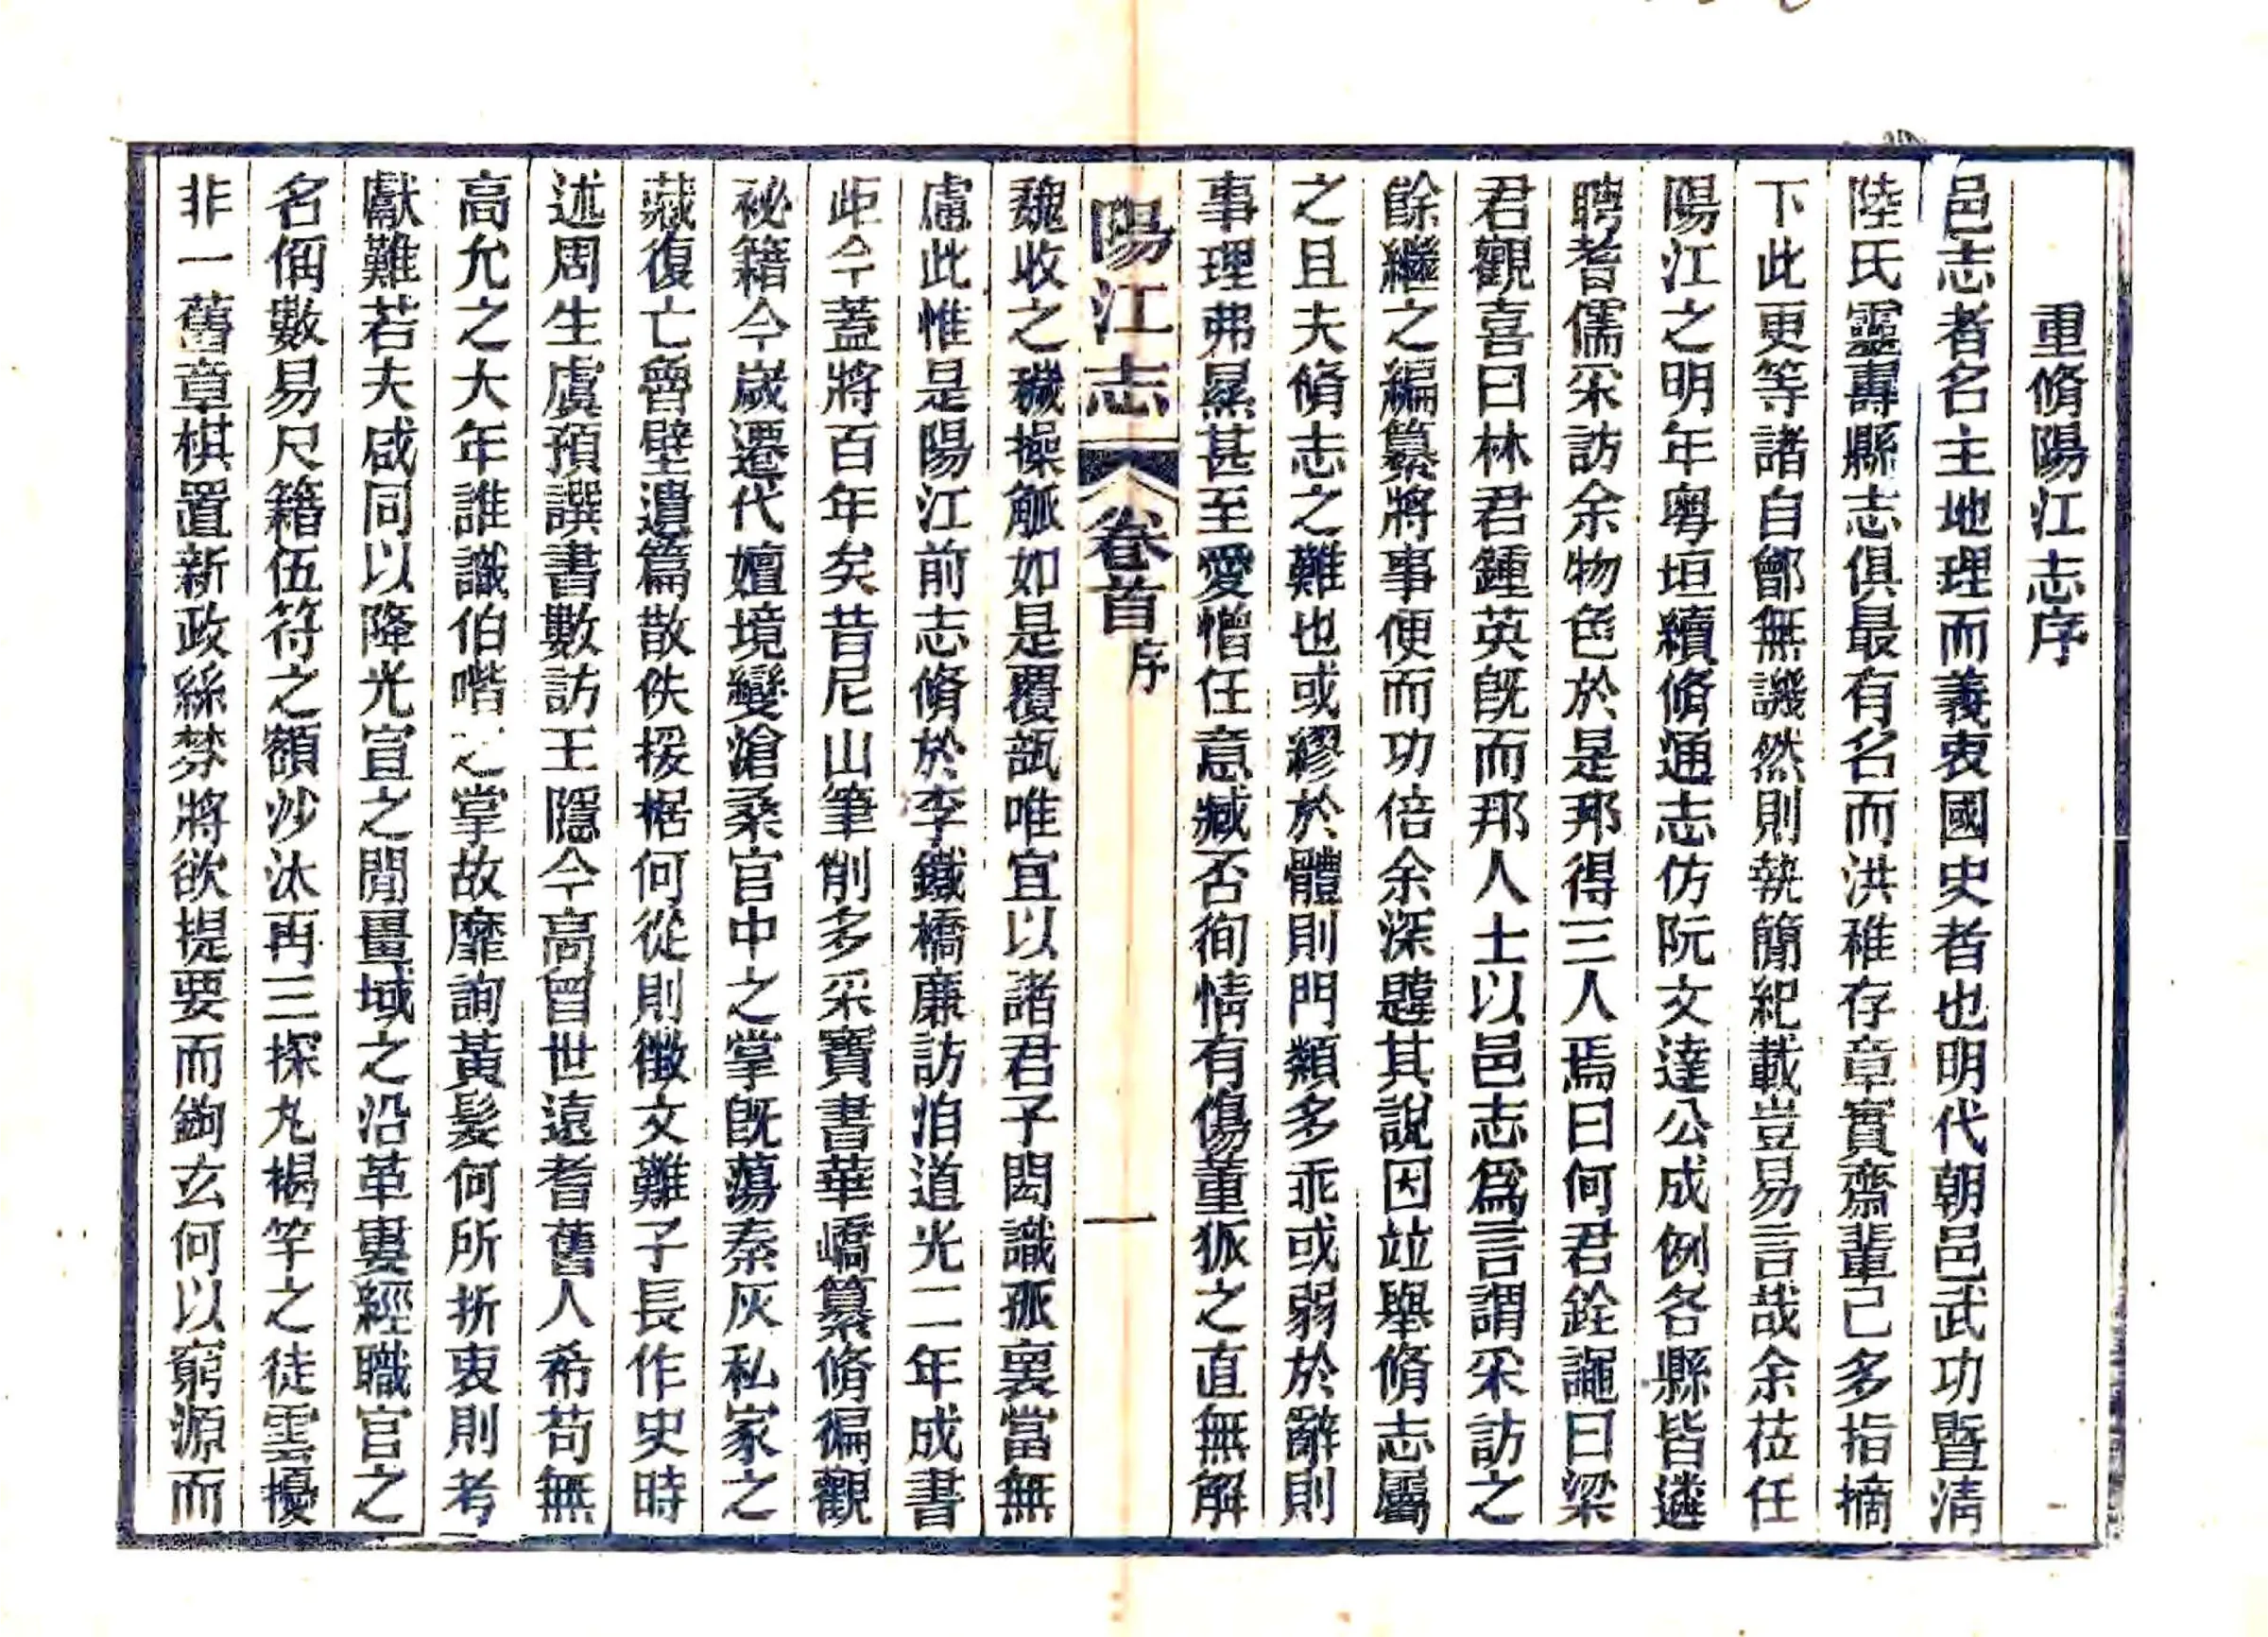 重脩陽江志序
邑志者名主地理而義衷國史者也明代朝邑武功暨清
陸氏靈壽縣志俱最有名而洪稚存章實齋輩已多指摘
下此更等諸自鄶無譏然則執簡紀載豈易言哉余莅任
陽江之明年粵垣續脩通志仿阮文達公成例各縣皆遴
聘耆儒采訪余物色於是邦得三人焉曰何君銓譝曰梁
君觀喜曰林君鍾英既而邦人士以邑志爲言謂采訪之
餘繼之編纂將事便而功倍余深韙其說因竝舉脩志屬
之且夫脩志之難也或繆於體則門類多乖或弱於辭則
事理弗㬎甚至愛憎任意臧否徇情有傷董狐之直無解
陽江志 卷首 序 一
魏收之穢操觚如是覆瓿唯宜以諸君子閎識孤裏當無
慮此惟是陽江前志脩於李鐵橋廉訪洎道光二年成書
歫今蓋將百年矣昔尼山筆削多采寶書華嶠纂脩徧觀
祕籍今歲遷代嬗境變滄桑官中之掌既蕩秦灰私家之
藏復亡魯壁遺篇散佚援据何從則徵文難子長作史時
述周生虞預譔書數訪王隱今高曾世遠耆舊人希苟無
高允之大年誰識伯喈之掌故靡詢黃髮何所折衷則考
獻難若夫咸同以降光宣之閒畺域之沿革婁經職官之
名偁數易尺籍伍符之額沙汰再三探丸揭竿之徒雲擾
非一舊章棋置新政絲棼將欲提要而鉤玄何以窮源而